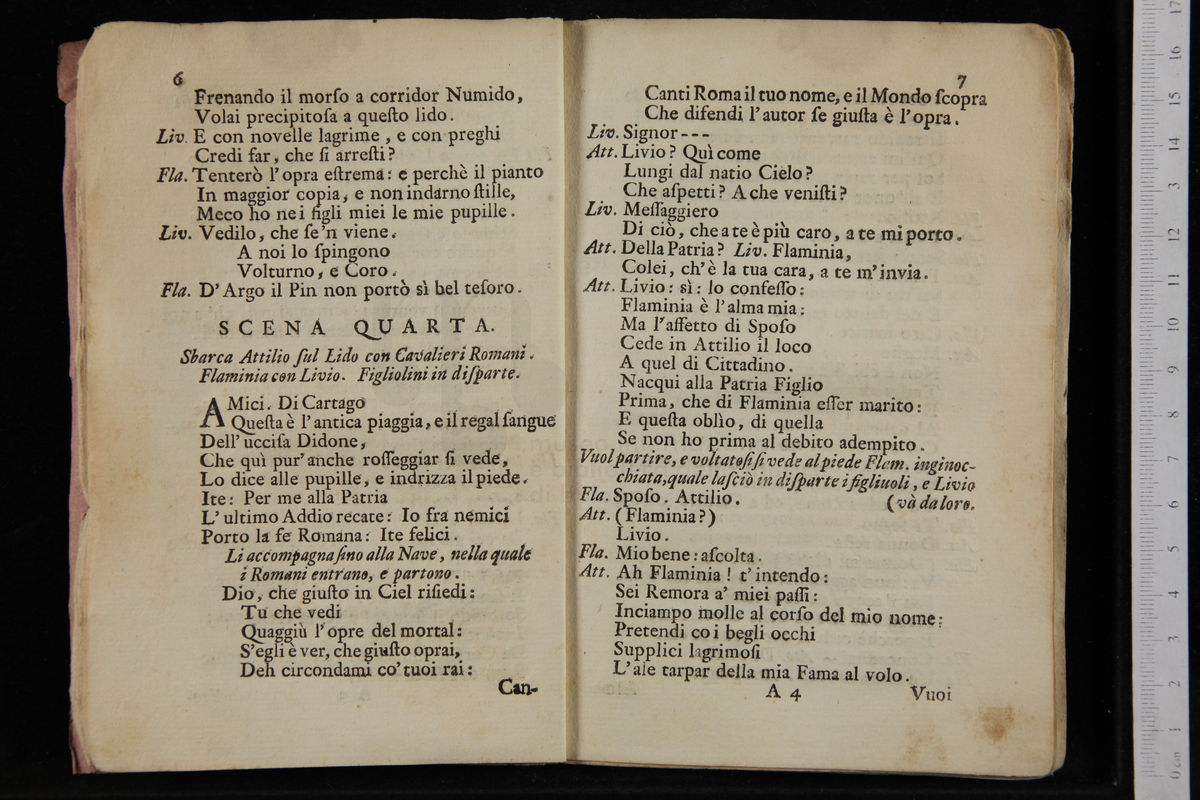 6
Frenando il morſo a corridor Numido,
Volai precipitoſa a queſto lido.
Liv. E con novelle lagrime, e con preghi
Credi far, che ſi arreſti?
Fla. Tenterò l'opra eſtrema: e perchè il pianto
In maggior copia, e non indarno ſtille,
Meco ho ne i figli miei le mie pupille.
Liv. Vedilo, che ſe'n viene.
A noi lo ſpingono
Volturno, e Coro.
Fla. D'Argo il Pin non portò sì bel teſoro.
SCENA QUARTA.
Sbarca Attilio ſul Lido con Cavalieri Romani.
Flaminia con Livio. Figliolini in diſparte.
AMici. Di Cartago
Queſta è l'antica piaggia, e il regal ſangue
Dell'ucciſa Didone,
Che quì pur'anche roſſeggiar ſi vede,
Lo dice alle pupille, e indrizza il piede.
Ite: Per me alla Patria
L'ultimo Addio recate: Io fra nemici
Porto la fe Romana: Ite felici.
Li accompagna fino alla Nave, nella quale
i Romani entrano, e partono.
Dio, che giuſto in Ciel riſiedi:
Tu che vedi
Quaggiù l'opre del mortal:
S'egli è ver, che giuſto oprai,
Deh circondami co'tuoi rai:
Can-
7
Canti Roma il tuo nome, e il Mondo ſcopra
Che difendi l'autor ſe giuſta è l'opra.
Liv. Signor - - -
Att. Livio? Quì come
Lungi dal natio Cielo?
Che aſpetti? A che veniſti?
Liv. Meſſaggiero
Di ciò, che a te è più caro, a te mi porto.
Att. Della Patria? Liv. Flaminia,
Colei, ch'è la tua cara, a te m'invia.
Att. Livio: sì: lo confeſſo:
Flaminia è l'alma mia:
Ma l'affetto di Spoſo
Cede in Attilio il loco
A quel di Cittadino.
Nacqui alla Patria Figlio
Prima, che di Flaminia eſſer marito:
E queſta oblìo, di quella
Se non ho prima al debito adempito.
Vuol partire, e voltatoſi ſi vede al piede Flam. inginoc-
chiata, quale laſciò in diſparte i figliuoli, e Livio
Fla. Spoſo. Attilio. (và da loro.
Att. (Flaminia?)
Livio.
Fla. Mio bene: aſcolta.
Att. Ah Flaminia! t'intendo:
Sei Remora a' miei paſſi:
Inciampo molle al corſo del mio nome:
Pretendi co i begli occhi
Supplici lagrimoſi
L'ale tarpar della mia Fama al volo.
A 4 Vuoi